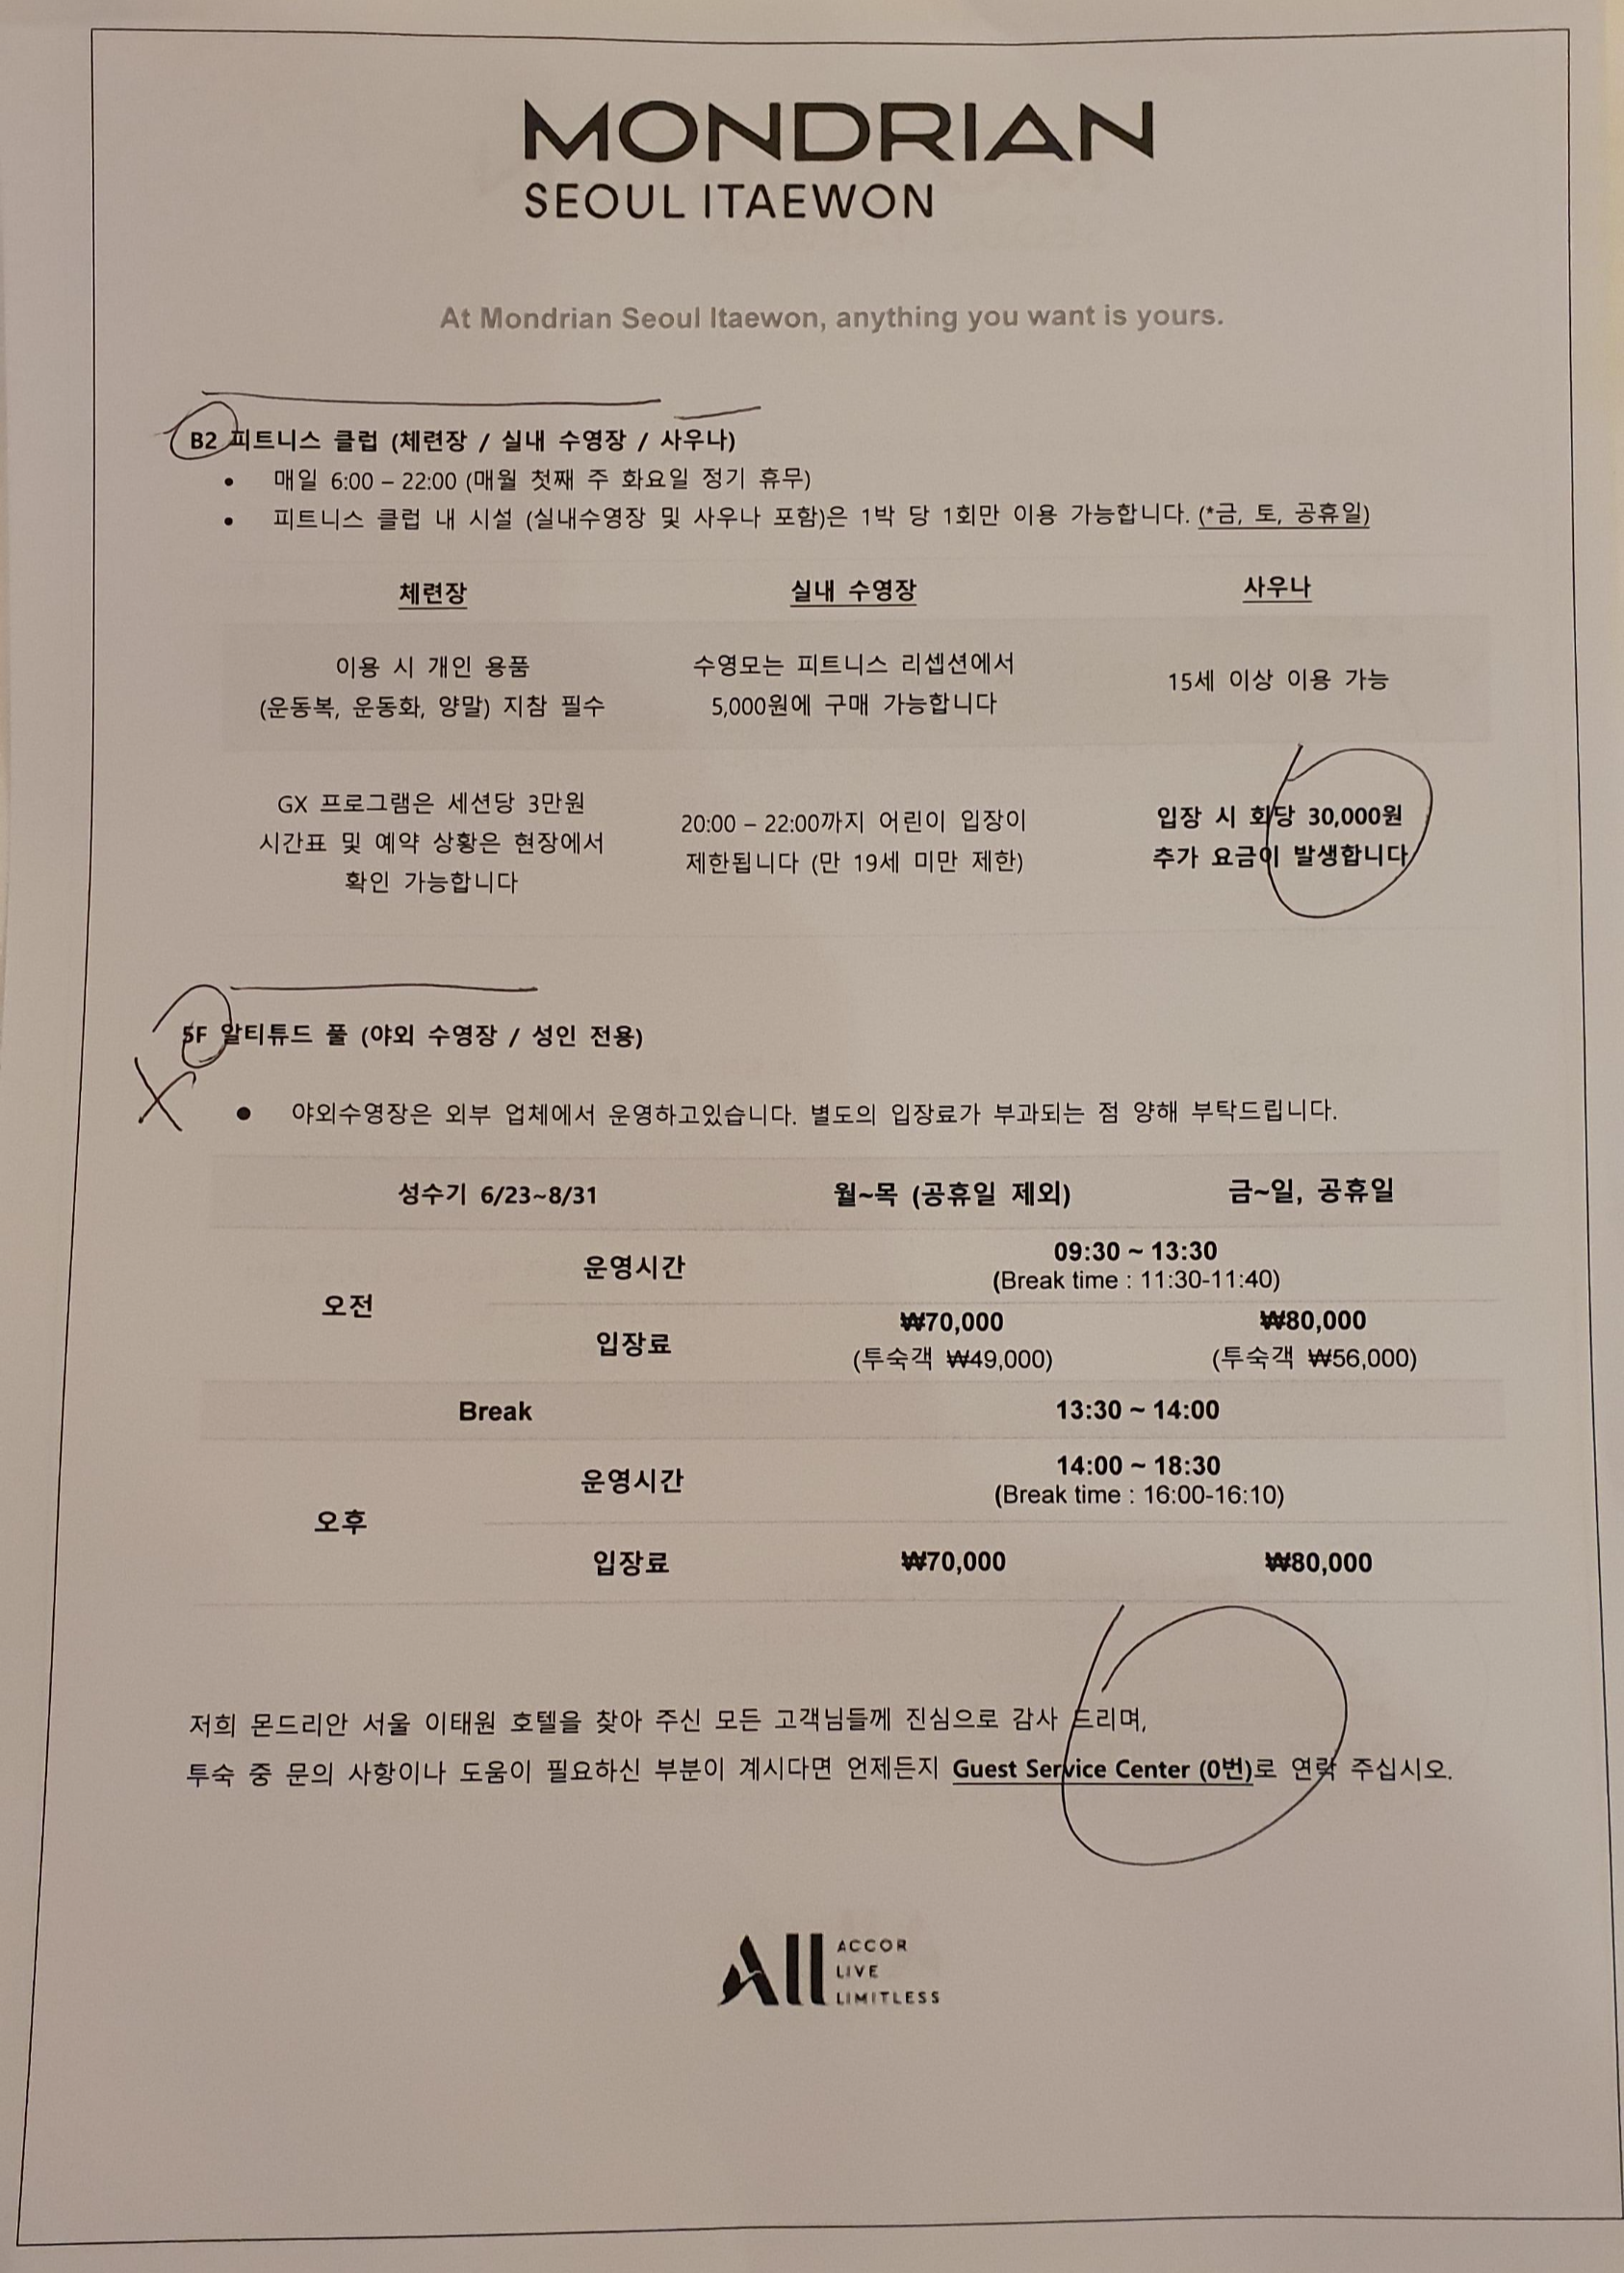 MONDRIAN
SEOUL ITAEWON
At Mondrian Seoul Itaewon, anything you want is yours.
B2 피트니스 클럽 (체련장 / 실내 수영장 / 사우나)
• 매일 6:00 – 22:00 (매월 첫째 주 화요일 정기 휴무)
• 피트니스 클럽 내 시설 (실내수영장 및 사우나 포함)은 1박 당 1회만 이용 가능합니다. (*금, 토, 공휴일)
체련장 실내 수영장 사우나
이용 시 개인 용품 수영모는 피트니스 리셉션에서
15세 이상 이용 가능
(운동복, 운동화, 양말) 지참 필수 5,000원에 구매 가능합니다
GX 프로그램은 세션당 3만원
20:00 – 22:00까지 어린이 입장이 입장 시 회당 30,000원
시간표 및 예약 상황은 현장에서
제한됩니다 (만 19세 미만 제한) 추가 요금이 발생합니다
확인 가능합니다
5F 알티튜드 풀 (야외 수영장 / 성인 전용)
X
• 야외수영장은 외부 업체에서 운영하고있습니다. 별도의 입장료가 부과되는 점 양해 부탁드립니다.
성수기 6/23~8/31 월~목 (공휴일 제외) 금~일, 공휴일
운영시간 09:30 ~ 13:30
(Break time : 11:30-11:40)
오전
입장료 ₩70,000 ₩80,000
(투숙객 ₩49,000) (투숙객 ₩56,000)
Break 13:30 ~ 14:00
운영시간 14:00 ~ 18:30
(Break time : 16:00-16:10)
오후
입장료 ₩70,000 ₩80,000
저희 몬드리안 서울 이태원 호텔을 찾아 주신 모든 고객님들께 진심으로 감사 드리며,
투숙 중 문의 사항이나 도움이 필요하신 부분이 계시다면 언제든지 Guest Service Center (0번)로 연락 주십시오.
All ACCOR
LIVE
LIMITLESS